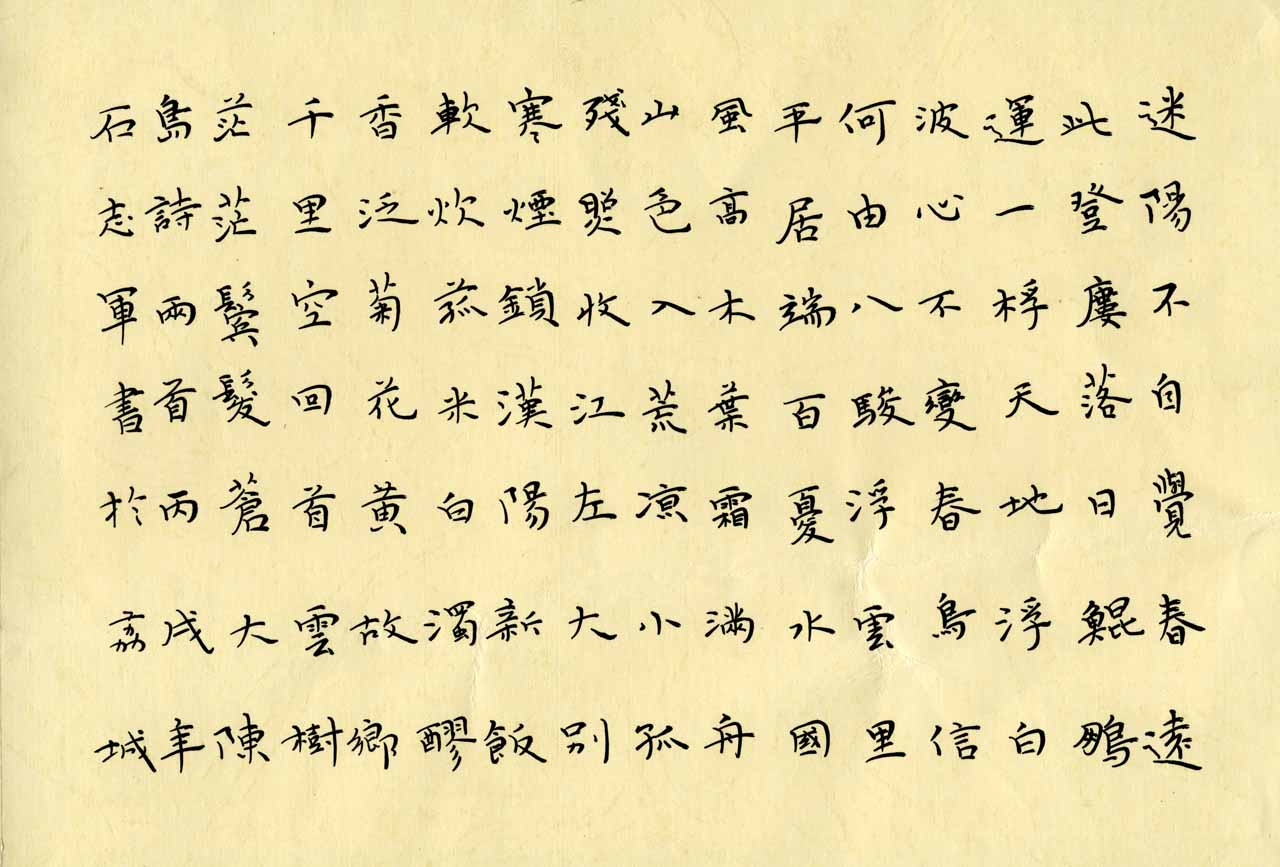 迷陽不自覺春遠
此登廔落日鯤鵬
運一桴天地浮白
波心不變春鳥信
何由八駿浮雲里
平居端百憂水國
風高木葉霜滿舟
山色入荒凉小孤
殘照收江左大別
寒煙鎖漢陽新飯
軟炊菰米白濁醪
香泛菊花黄故鄉
千里空回首雲樹
茫茫鬢髮蒼大陳
島詩兩首丙戌年
石志軍書於荔城